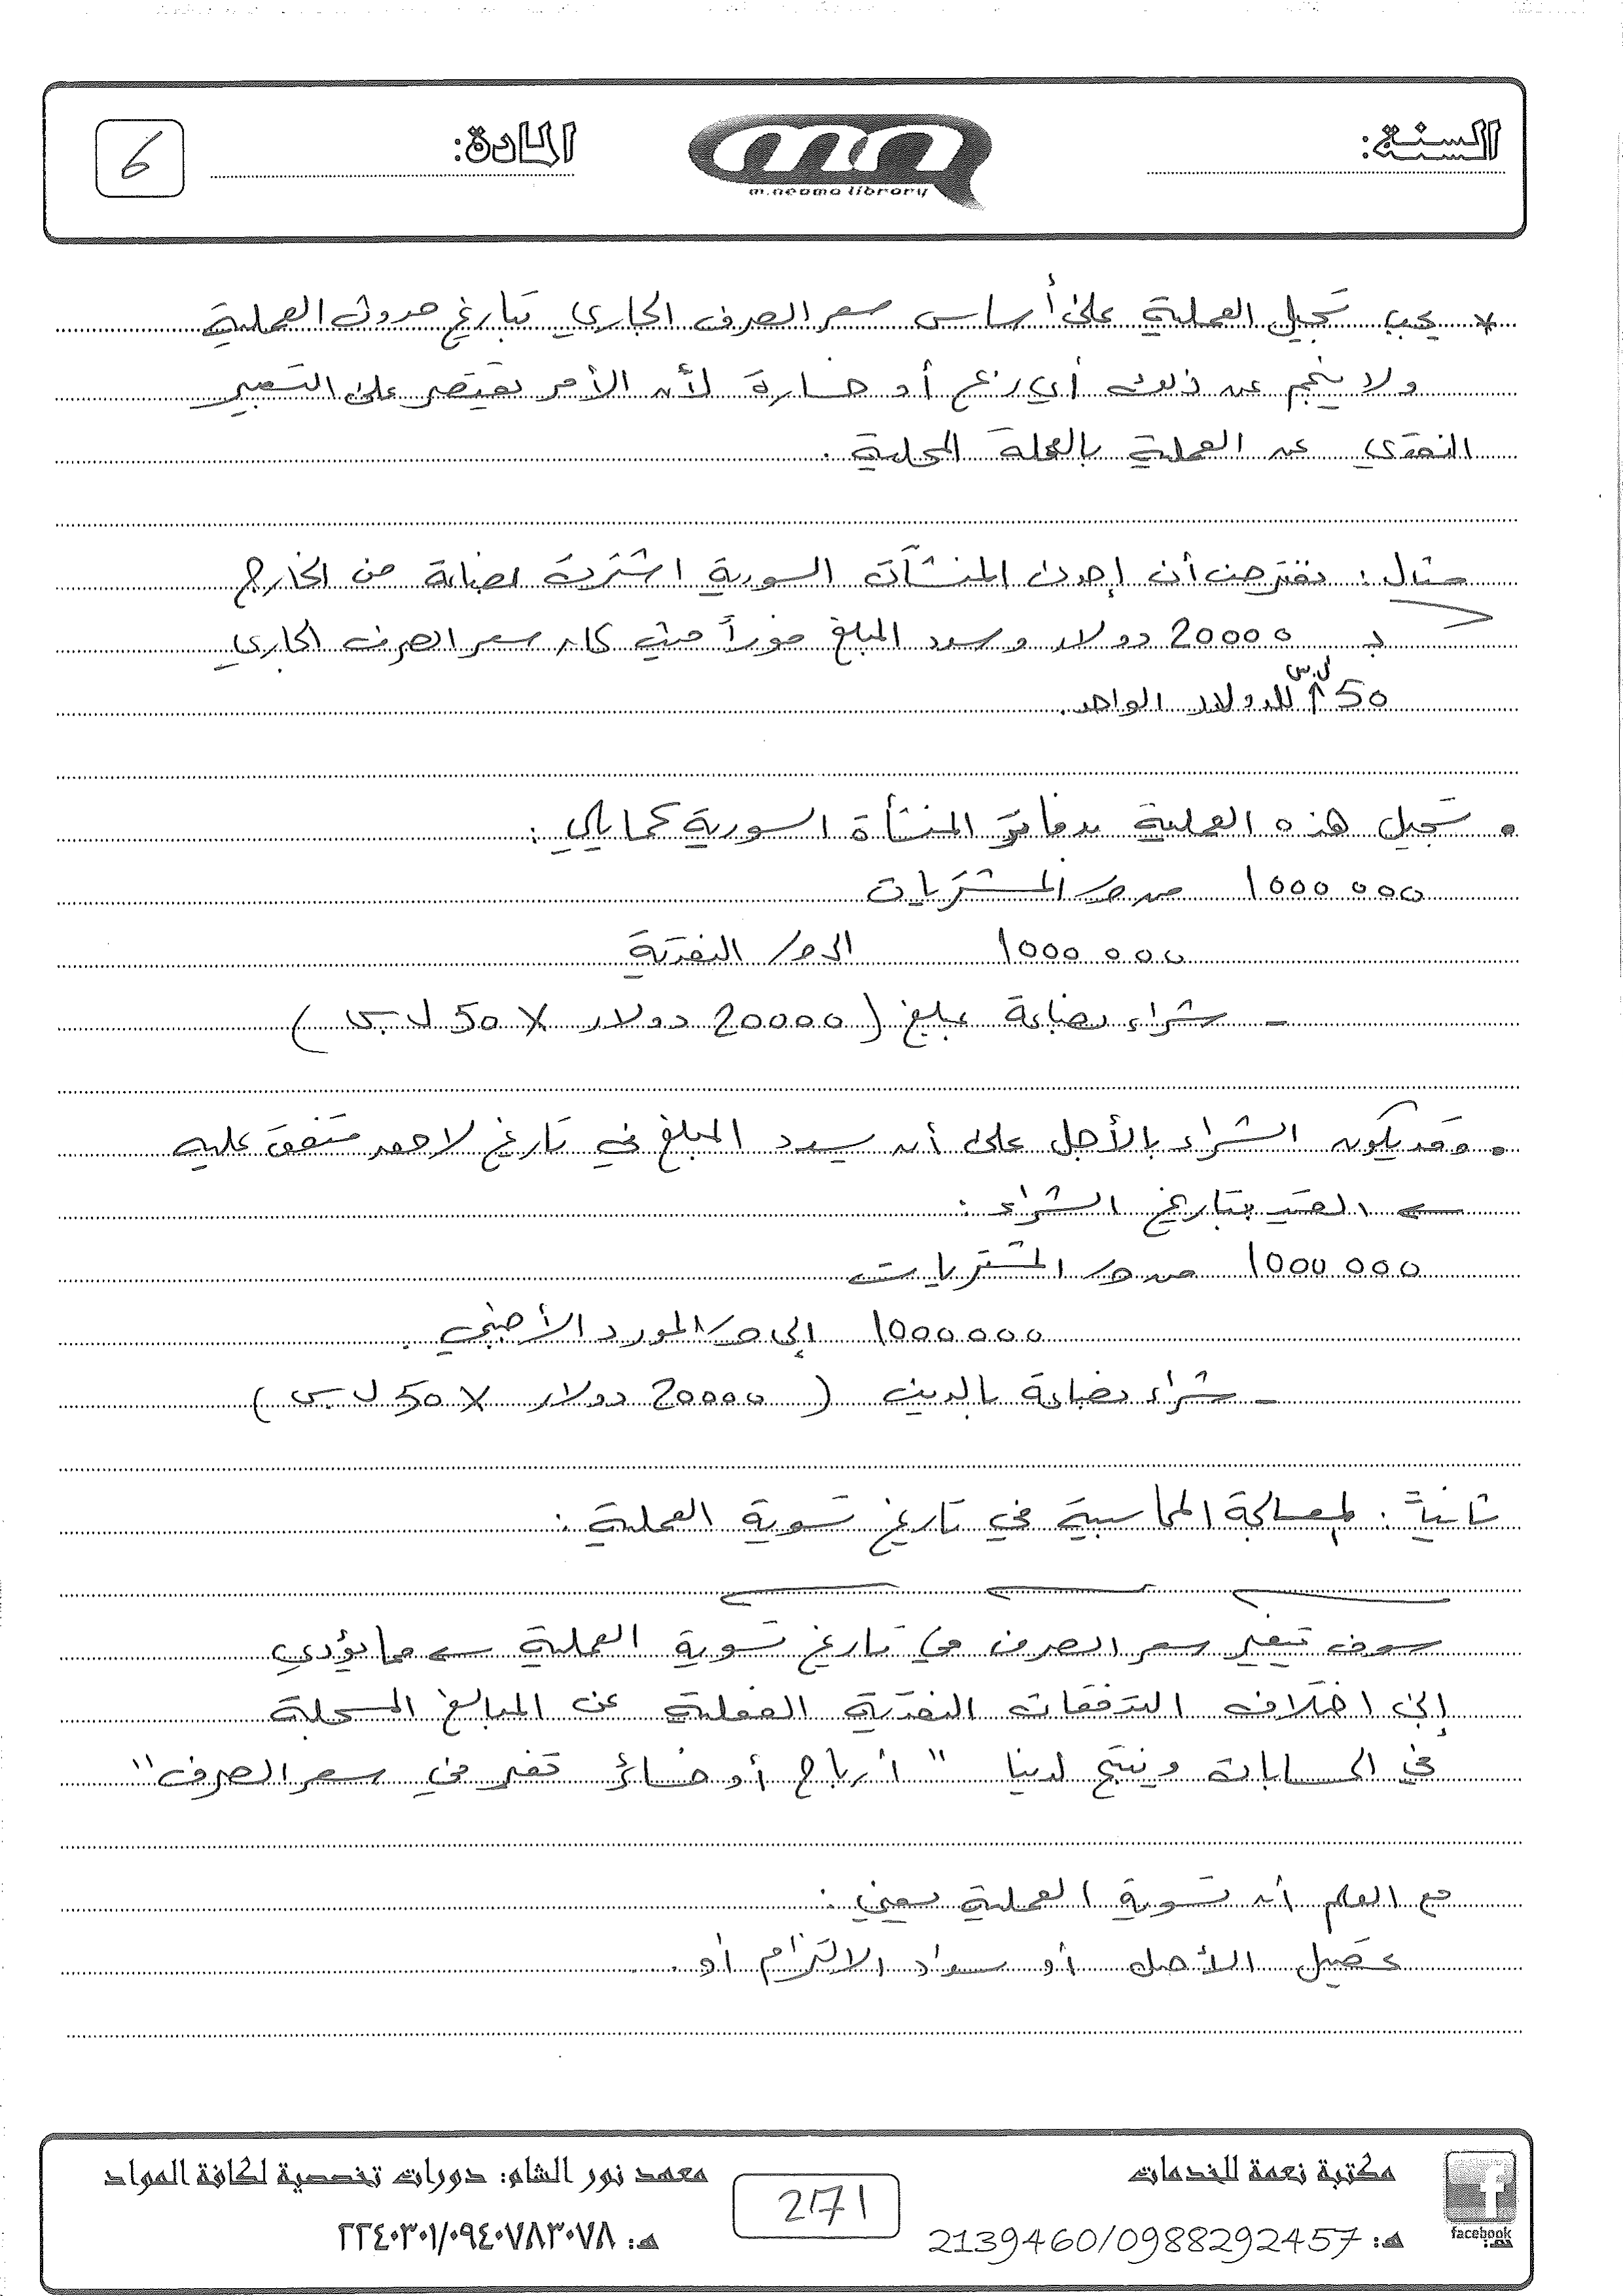 السنة:
m.neama library
المادة:
6
* يجب تسجيل العملية على أساس سعر الصرف الجاري بتاريخ حدوث العملية
ولا ينجم عن ذلك أي ربح أو خسارة لأن الأمر يقتصر على التعبير
النقدي عن العملية بالعملة المحلية .
مثال : نفترض أن إحدى المنشآت السورية اشترت بضاعة من الخارج
بـ 20000 دولار وسدد المبلغ فوراً حيث كان سعر الصرف الجاري
50 ل.س للدولار الواحد.
• تسجل هذه العملية بدفاتر المنشأة السورية كما يلي :
1000 000 من ح/ المشتريات
1000 000 إلى ح/ النقدية
- شراء بضاعة بمبلغ ( 20000 دولار × 50 ل.س )
• وقد يكون الشراء بالأجل على أن يسدد المبلغ في تاريخ لاحق متفق عليه
← القيد بتاريخ الشراء :
1000 000 من ح/ المشتريات
1000 000 إلى ح/ المورد الأجنبي .
- شراء بضاعة بالدين ( 20000 دولار × 50 ل.س )
ثانياً : المعالجة المحاسبية في تاريخ تسوية العملية :
سوف يتغير سعر الصرف في تاريخ تسوية العملية ← مما يؤدي
إلى اختلاف التدفقات النقدية الفعلية عن المبالغ المسجلة
في الحسابات وينتج لدينا " أرباح أو خسائر تغير في سعر الصرف "
مع العلم أن تسوية العملية يعني :
تحصيل الأصل أو سداد الالتزام أو .
facebook
مكتبة نعمة للخدمات
هـ: 2139460/0988292457
2171
معهد نور الشام: دورات تخصصية لكافة المواد
هـ: ٢٢٤٠٣٠١/٠٩٤٠٧٨٣٠٧٨